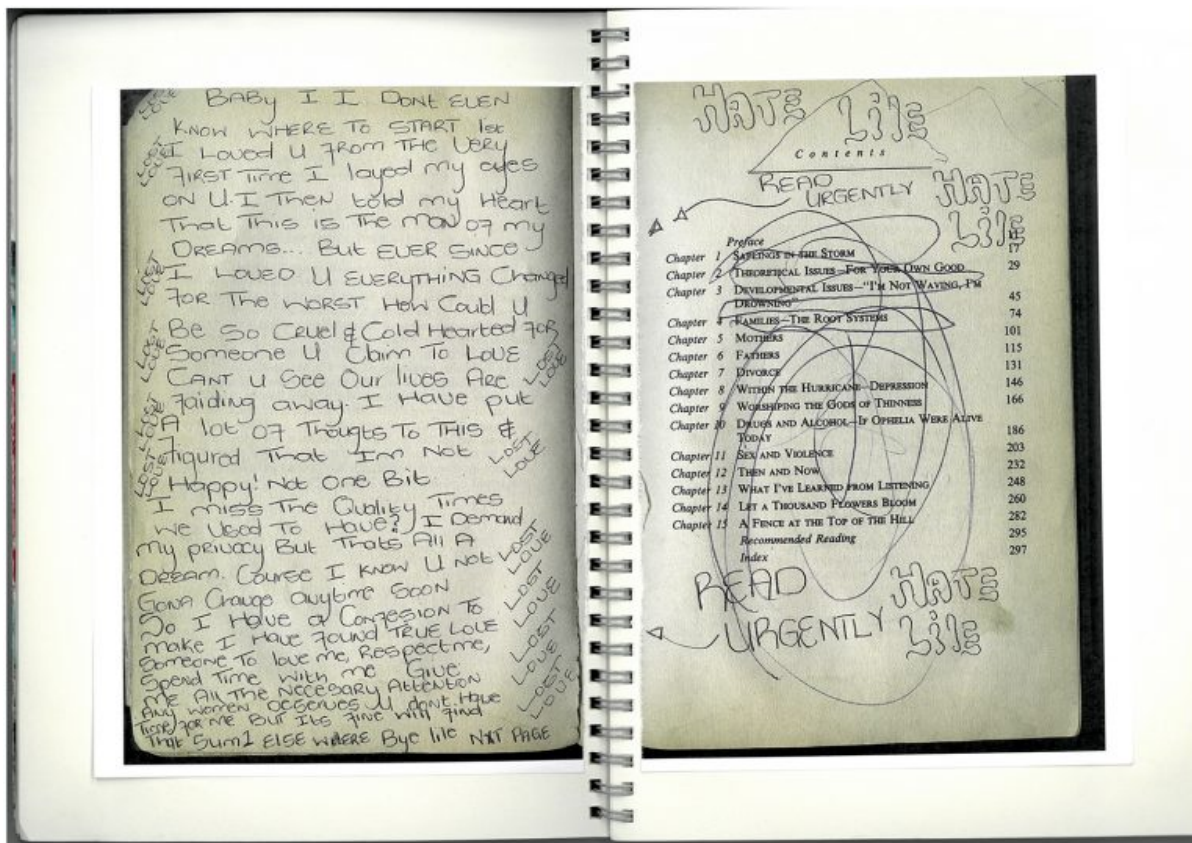 BABY I I DONT EVEN
KNOW WHERE TO START 1st
I LOVED U FROM THE VERY
FIRST TIME I layed my eyes
ON U. I THEN told my HEART
THAT THIS IS THE MAN OF my
DREAMS... BUT EVER SINCE
I LOVED U EVERYTHING Changed
FOR THE WORST HOW Could U
Be So CRUEl & Cold HEARTED FOR
SOMEONE U Claim To LOVE
CANT U See OUR lives ARE
Faiding away. I HAVE put
A lot OF Thougts To THIS &
figured THAT Im NOT
Happy! Not ONE Bit
I miss THE Quality Times
We USED To HAVE? I DEMAND
my pRivacy BUT THATS All A
DREAM. COURSE I KNOW U NOT
GONA Change anytime SOON
So I HAVE a CONFESION To
make I HAVE FOUND TRUE LOVE
Someone To love me, RESPECT me,
Spend Time with me GIVE
ME All THE Necesary Attention
ANY WOMEN DESERVES U DONT HAVE
Time FOR ME BUT ITS FINE Will FIND
THAT SUM1 ELSE WHERE Bye life NXT PAGE
LOST LOVE
LOST LOVE
LOST LOVE
LOST LOVE
LOST LOVE
LOST LOVE
LOST LOVE
LOST LOVE
LOST LOVE
LOST LOVE
LOST LOVE
LOST LOVE
HATE LIFE
Contents
READ
URGENTLY
HATE
LIFE
Preface 11
Chapter 1 SAPLINGS IN THE STORM 17
Chapter 2 THEORETICAL ISSUES—FOR YOUR OWN GOOD 29
Chapter 3 DEVELOPMENTAL ISSUES—"I'M NOT WAVING, I'M
DROWNING" 45
Chapter 4 FAMILIES—THE ROOT SYSTEMS 74
Chapter 5 MOTHERS 101
Chapter 6 FATHERS 115
Chapter 7 DIVORCE 131
Chapter 8 WITHIN THE HURRICANE—DEPRESSION 146
Chapter 9 WORSHIPING THE GODS OF THINNESS 166
Chapter 10 DRUGS AND ALCOHOL—IF OPHELIA WERE ALIVE
TODAY 186
Chapter 11 SEX AND VIOLENCE 203
Chapter 12 THEN AND NOW 232
Chapter 13 WHAT I'VE LEARNED FROM LISTENING 248
Chapter 14 LET A THOUSAND FLOWERS BLOOM 260
Chapter 15 A FENCE AT THE TOP OF THE HILL 282
Recommended Reading 295
Index 297
READ
URGENTLY
HATE
LIFE